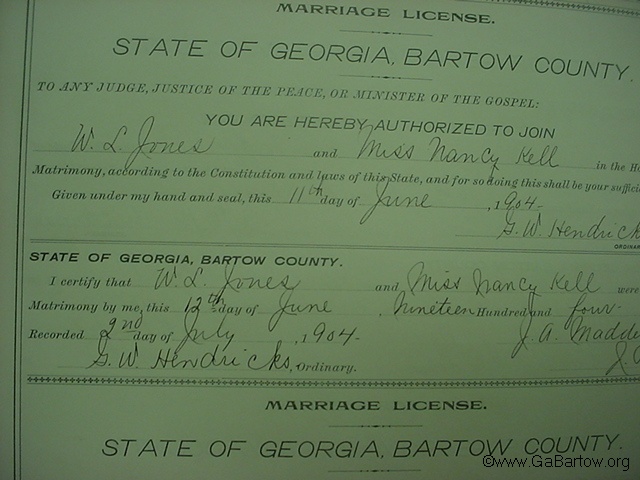 MARRIAGE LICENSE.
STATE OF GEORGIA, BARTOW COUNTY.
TO ANY JUDGE, JUSTICE OF THE PEACE, OR MINISTER OF THE GOSPEL:
YOU ARE HEREBY AUTHORIZED TO JOIN
W. L. Jones and Miss Nancy Kell in the Ho
Matrimony, according to the Constitution and laws of this State, and for so doing this shall be your suffici
Given under my hand and seal, this 11th day of June, 1904.
G. W. Hendrick
ORDINAR
STATE OF GEORGIA, BARTOW COUNTY.
I certify that W. L. Jones and Miss Nancy Kell were
Matrimony by me, this 12th day of June, Nineteen Hundred and four
Recorded 2nd day of July, 1904. J. A. Madde
G. W. Hendricks, Ordinary. J.
MARRIAGE LICENSE.
STATE OF GEORGIA, BARTOW COUNTY.
©www.GaBartow.org